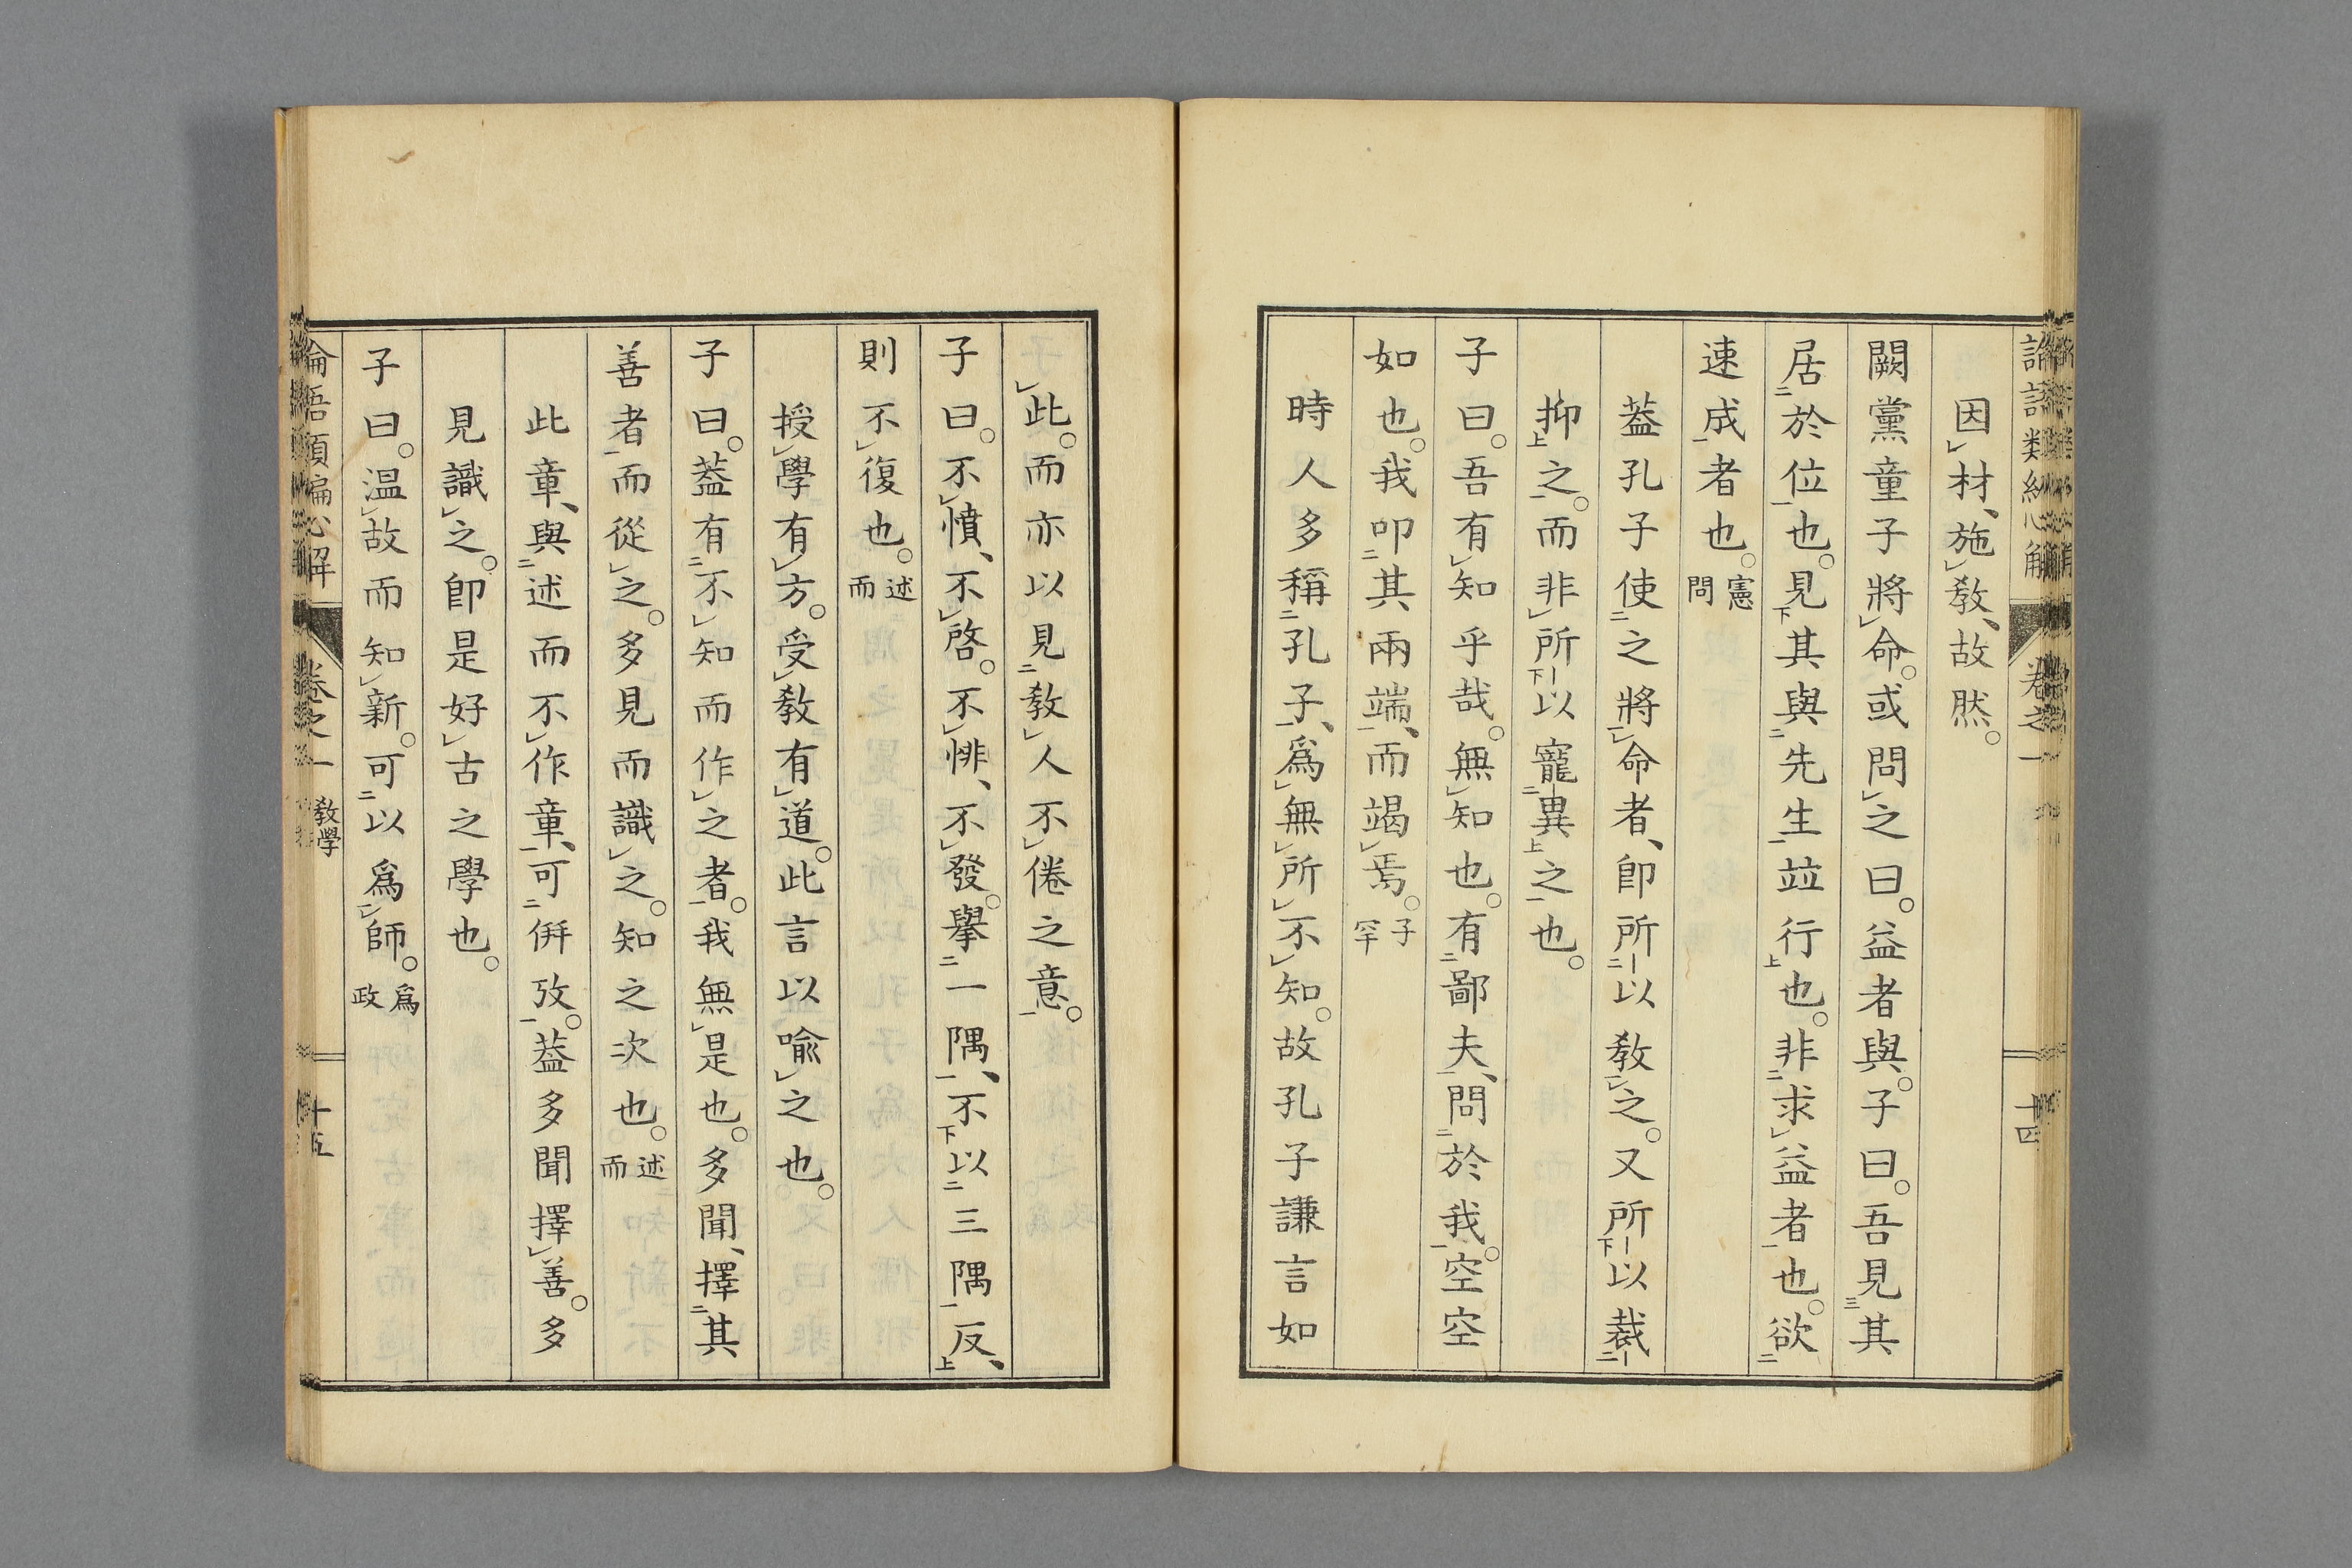 因材、施敎、故然。
闕黨童子將命。或問之曰。益者與。子曰。吾見其
居於位也。見其與先生竝行也。非求益者也。欲
速成者也。憲問
蓋孔子使之將命者、卽所以敎之。又所以裁
抑之。而非所以寵異之也。
子曰。吾有知乎哉。無知也。有鄙夫、問於我。空空
如也。我叩其兩端、而竭焉。子罕
時人多稱孔子、爲無所不知。故孔子謙言如
此。而亦以見敎人不倦之意。
子曰。不憤、不啓。不悱、不發。擧一隅、不以三隅反、
則不復也。述而
授學有方。受敎有道。此言以喩之也。
子曰。蓋有不知而作之者。我無是也。多聞、擇其
善者而從之。多見而識之。知之次也。述而
此章、與述而不作章、可倂攷。蓋多聞擇善。多
見識之。卽是好古之學也。
子曰。温故而知新。可以爲師。爲政
卷之一 敎學
十五